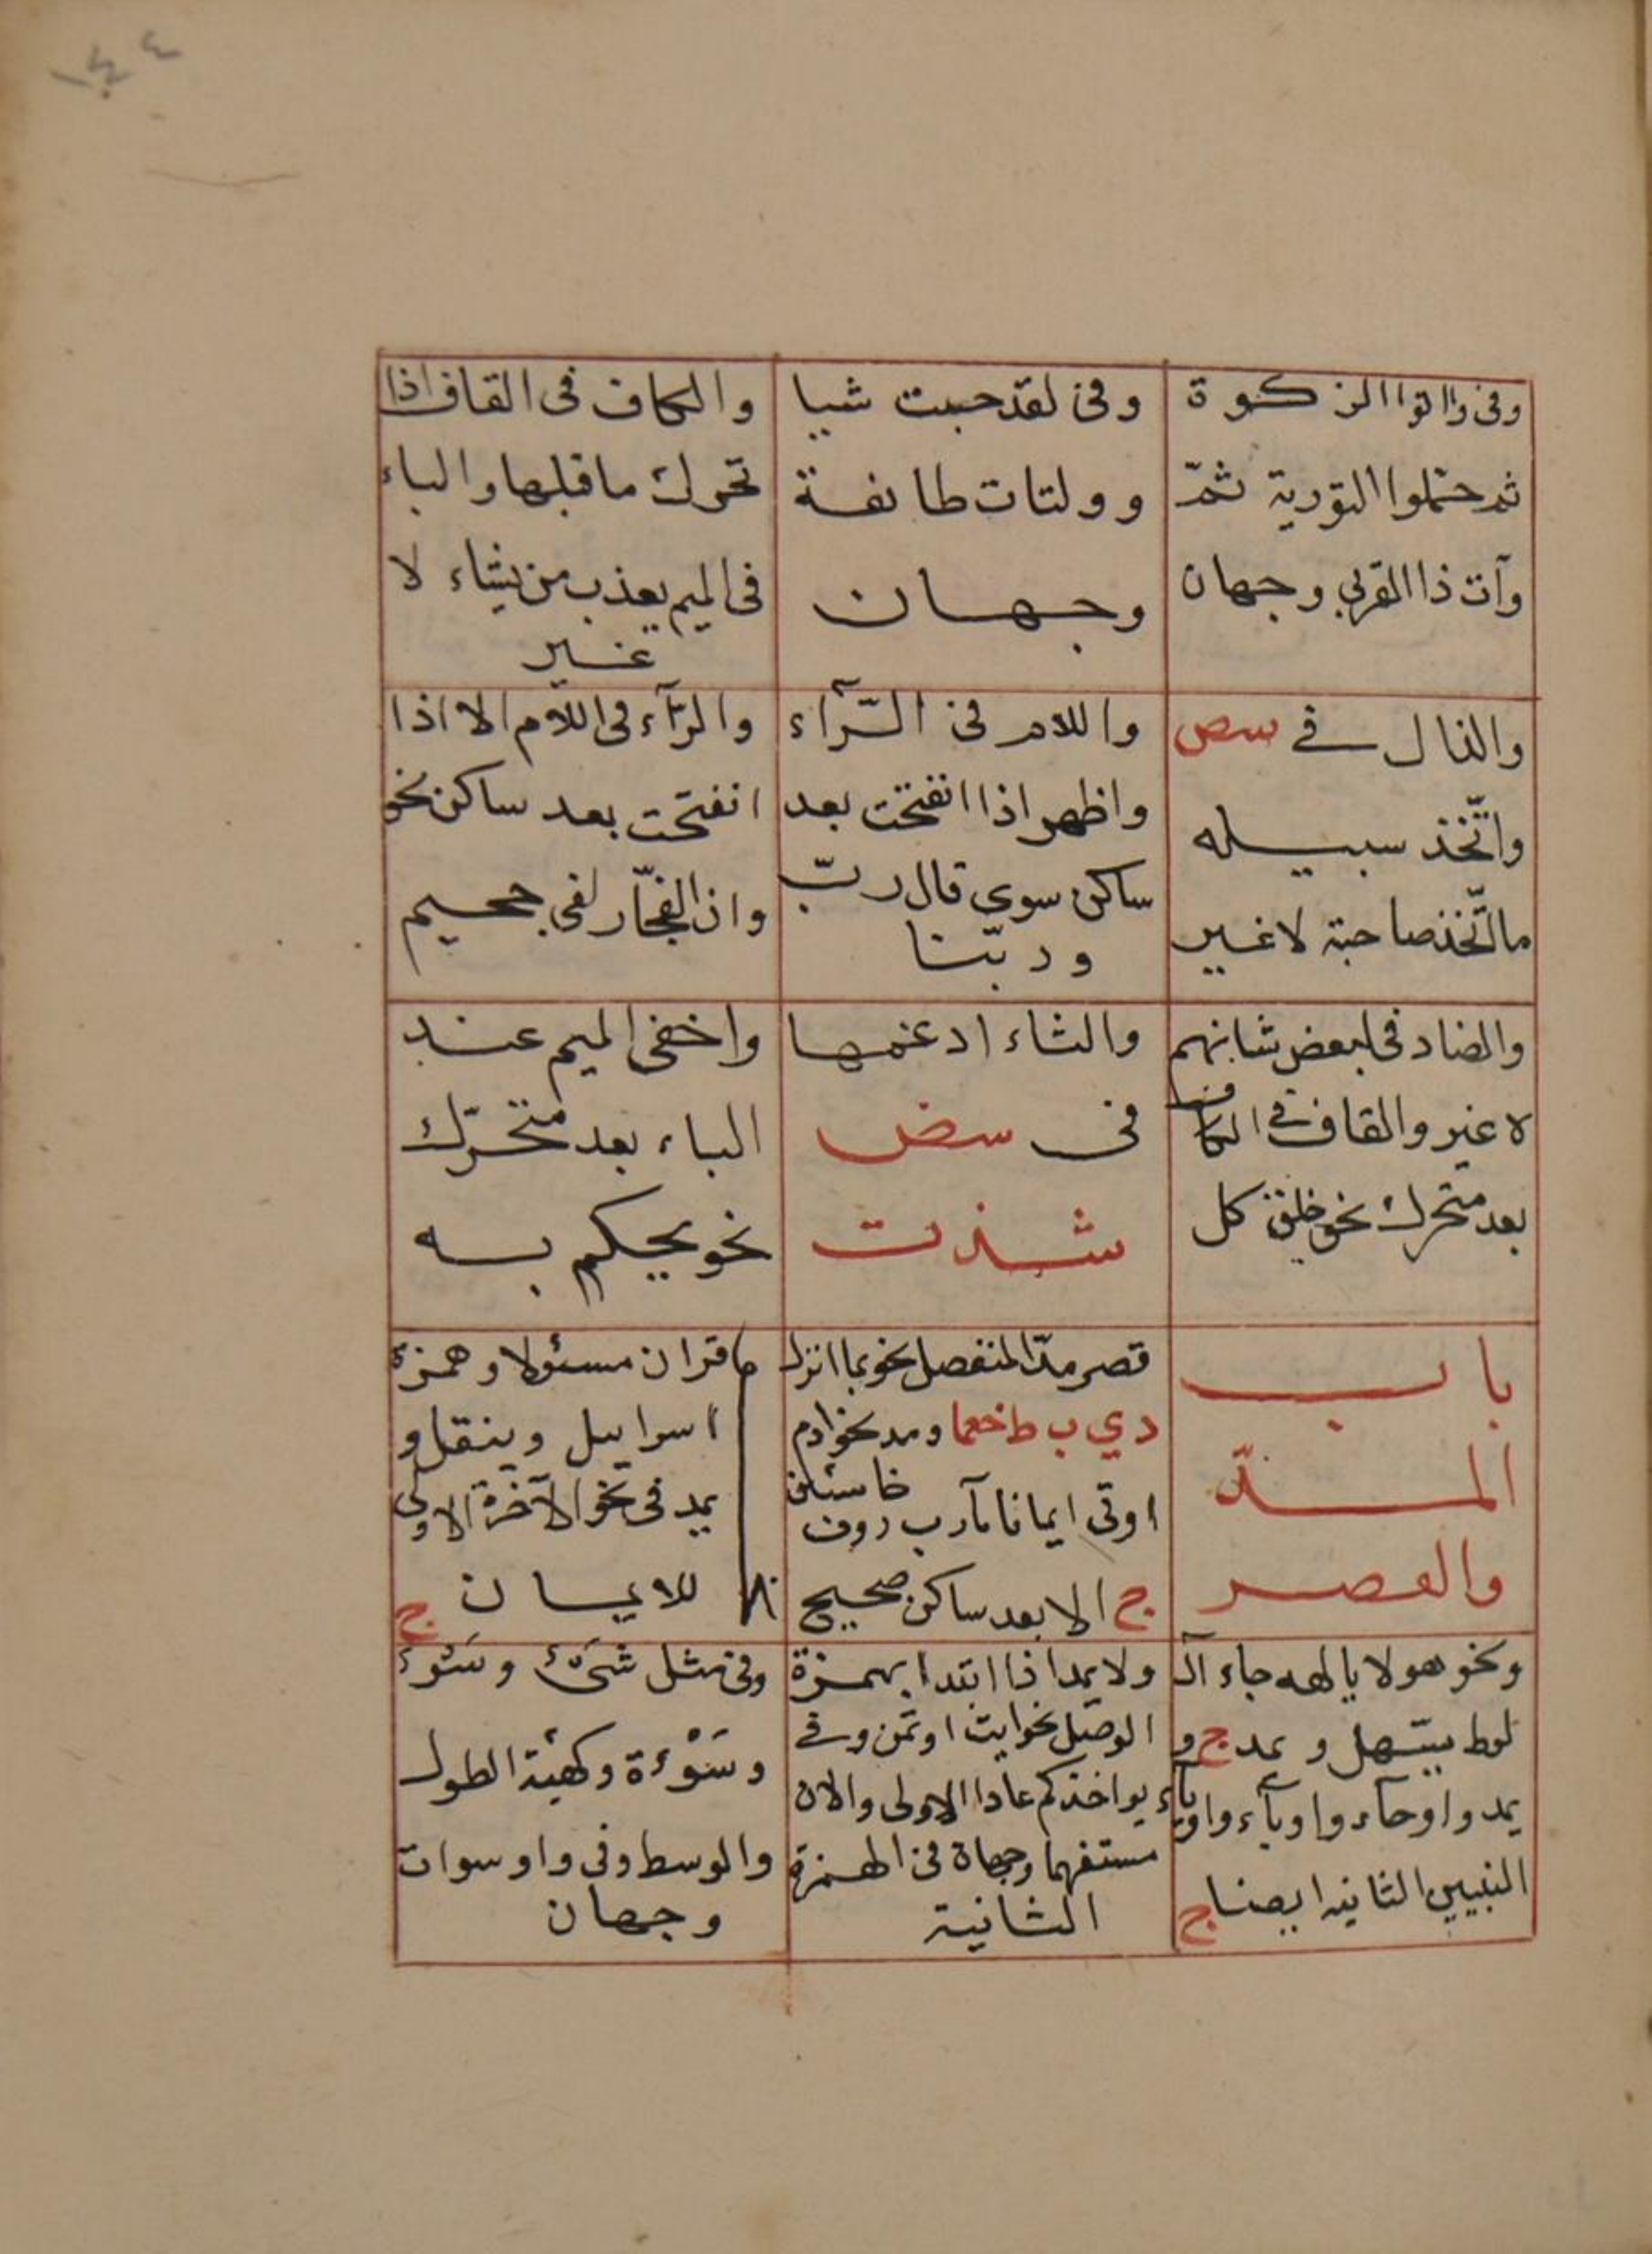 ١٤٤
وفى واتوا الزكوة
ثم حملوا التورية ثمّ
وآت ذا القربى وجهان
وفى لقد جيت شيا
و ولتات طائفة
وجهان
والكاف فى القاف اذا
تحرك ما قبلها والباء
فى الميم يعذب من يشاء لا
غير
والذال فى سص
واتّخذ سبيله
ما اتّخذ صاحبة لا غير
واللام فى الرّآء
واظهر اذا انفتحت بعد
ساكن سوى قال ربّ
وربّنا
والرّآء فى اللام الا اذا
انفتحت بعد ساكن نحو
وان الفجّار لفى جحيم
والضاد فى لبعض شانهم
لا غير والقاف فى الكاف
بعد متحرك نحو خلق كل
والثاء ادغمها
فى سض
شذت
واخفى الميم عند
الباء بعد متحرّك
نحو يحكم به
باب
المدّ
والقصر
قصر مدّ المنفصل نحو بما انزل
دي ب طخعما ومد نحو ادم
اوتى ايمانا مآرب روف خاسئين
ج الا بعد ساكن صحيح
قران مسئولا وهمزة
اسراييل وينقل و
يمد فى نحو الآخرة الاولى
للايمان ج
ونحو هولا يا الهه جاء آل
لوط يسّهل ويمد ج و
يمد واو حآء واو يآء واو ياء
النبيين الثانيه ايضا ج
ولا يمد اذا ابتدا بهمزة
الوصل نحو ايت اوتمن وفى
يواخذكم عادا الاولى والان
مستفهما وجهان فى الهمزة
الثانية
وفى مثل شَىْء وسَوْء
وسَوْءة وكهيئة الطول
والوسط وفى واو سوات
وجهان